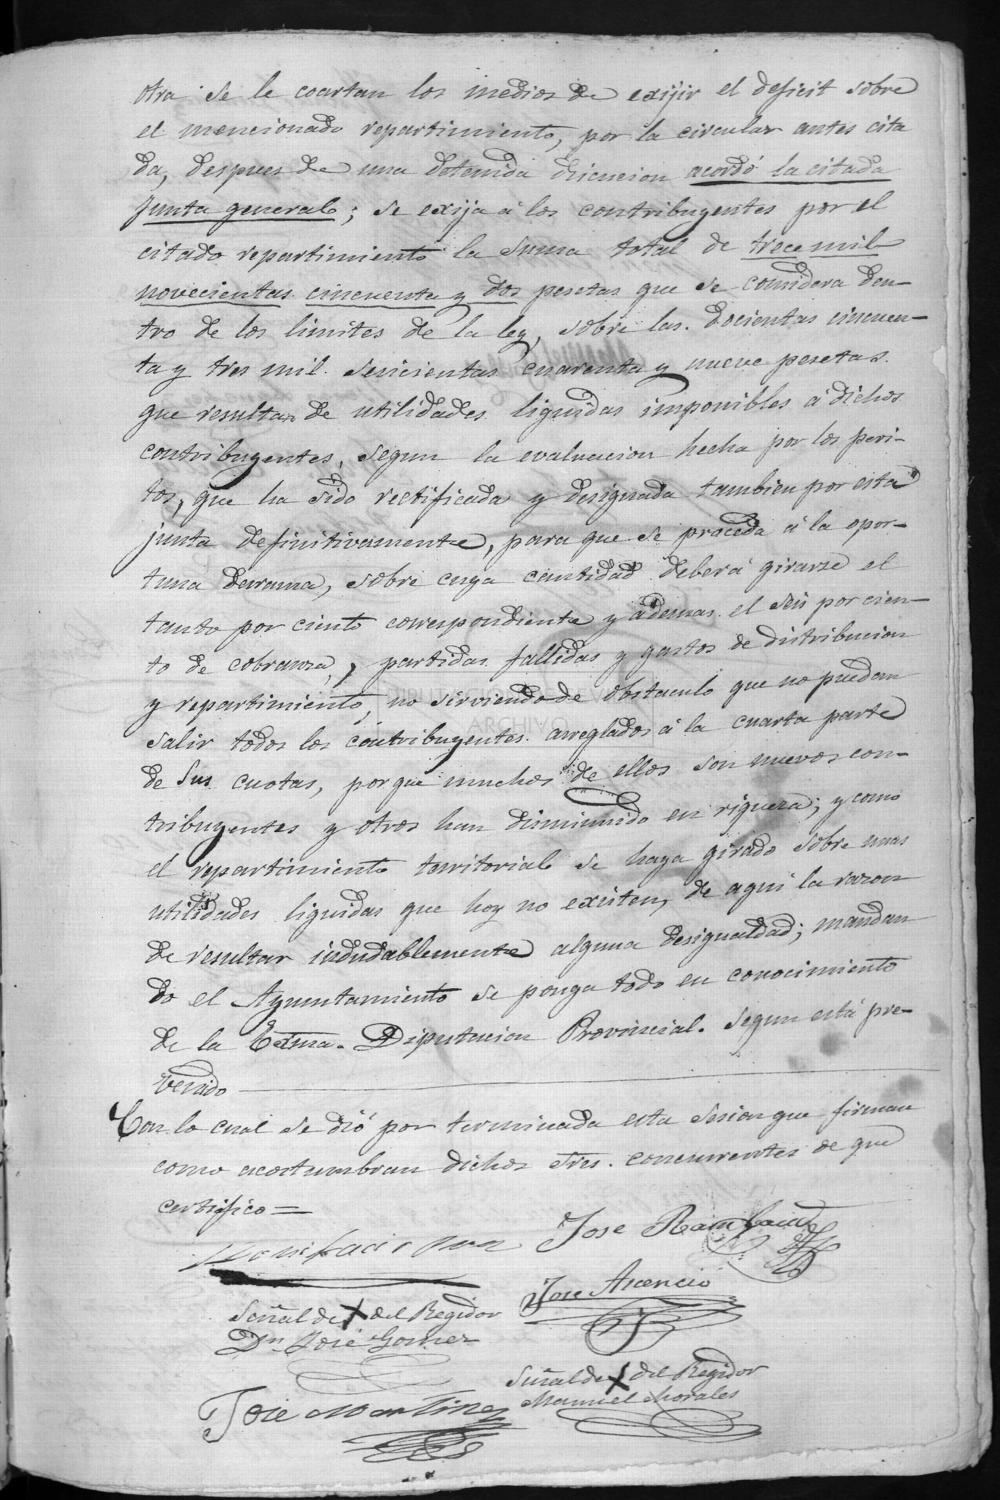 otra se le coartan los medios de exijir el deficit sobre
el mencionado repartimiento, por la circular antes cita
da, despues de una detenida discucion acordó la citada
Junta general; se exija á los contribuyentes por el
citado repartimiento la suma total de trece mil
novecientas cincuenta y dos pesetas que se considera den-
tro de los limites de la ley, sobre las docientas cincuen-
ta y tres mil seiscientas cuarenta y nueve pesetas
que resultan de utilidades liquidas imponibles á dichos
contribuyentes, segun la evaluacion hecha por los peri-
tos, que ha sido rectificada y designada tambien por esta
junta definitivamente, para que se proceda á la opor-
tuna derrama, sobre cuya cantidad deberá girarse el
tanto por ciento correspondiente y ademas el seis por cien-
to de cobranza, partidas fallidas y gastos de distribucion
y repartimiento, no sirviendo de obstaculo que no puedan
salir todos los contribuyentes arreglados á la cuarta parte
de sus cuotas, porque muchos de ellos son nuevos con-
tribuyentes y otros han disminuido en riqueza; y como
el repartimiento territorial se haya girado sobre unas
utilidades liquidas que hoy no existen, de aqui la razon
de resultar indudablemente alguna desigualdad; mandan
do el Ayuntamiento se ponga todo en conocimiento
de la Exma. Diputacion Provincial segun está pre-
venido
Con lo cual se dió por terminada esta sesion que firman
como acostumbran dichos Sres. concurrentes de que
certifico=
Jose
Jose Ascencio
Señal de X del Regidor
Dn José Gomez
Señal de X del Regidor
Manuel Morales
Jose Martinez
DIPUTACION DE
ARCHIVO